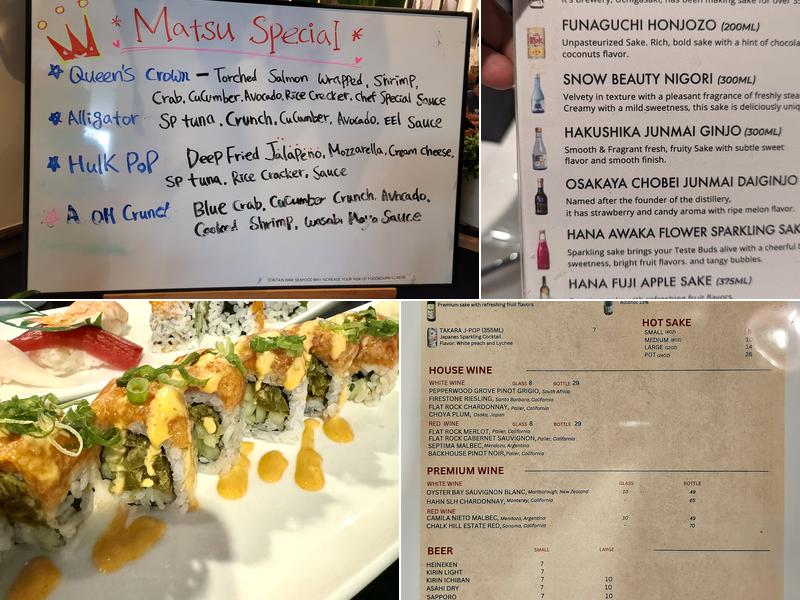 * Matsu Special *
Queen's Crown – Torched Salmon Wrapped, Shrimp,
Crab, Cucumber, Avocado, Rice Cracker, Chef Special Sauce
Alligator SP tuna, Crunch, Cucumber, Avocado, EEl Sauce
HulK PoP Deep Fried Jalapeño, Mozzarella, Cream cheese,
SP tuna, Rice Cracker, Sauce
Blue Crab, Cucumber Crunch, Avocado,
Cooked Shrimp, Wasabi Mayo Sauce
FUNAGUCHI HONJOZO (200ML)
Unpasteurized Sake. Rich, bold sake with a hint of
coconuts flavor.
SNOW BEAUTY NIGORI (300ML)
Velvety in texture with a pleasant fragrance of freshly
Creamy with a mild sweetness, this sake is deliciously
HAKUSHIKA JUNMAI GINJO (300ML)
Smooth & Fragrant fresh, fruity Sake with subtle sweet
flavor and smooth finish.
OSAKAYA CHOBEI JUNMAI DAIGINJO
Named after the founder of the distillery,
it has strawberry and candy aroma with ripe melon flavor.
HANA AWAKA FLOWER SPARKLING
Sparkling sake brings your Teste Buds alive with a cheerful
sweetness, bright fruit flavors. and tangy bubbles.
HANA FUJI APPLE SAKE (375ML)
refreshing flavors.
Premium sake with refreshing fruit flavors
TAKARA J-POP (355ML) 7
Japanes Sparkling Cocktail
Flavor: White peach and Lychee
HOT SAKE
SMALL (4OZ)
MEDIUM (8OZ) 10
LARGE (12OZ) 14
POT (24OZ) 26
HOUSE WINE
WHITE WINE GLASS 8 BOTTLE 29
PEPPERWOOD GROVE PINOT GRIGIO, South Africa
FIRESTONE RIESLING, Santa Barbara, California
FLAT ROCK CHARDONNAY, Parlier, California
CHOYA PLUM, Osaka, Japan
RED WINE GLASS 8 BOTTLE 29
FLAT ROCK MERLOT, Parlier, California
FLAT ROCK CABERNET SAUVIGNON, Parlier, California
SEPTIMA MALBEC, Mendoza, Argentina
BACKHOUSE PINOT NOIR, Parlier, California
PREMIUM WINE
WHITE WINE GLASS BOTTLE
OYSTER BAY SAUVIGNON BLANC, Marlborough, New Zealand 10 49
HAHN SLH CHARDONNAY, Monterey, California - 65
RED WINE
CAMILA NIETO MALBEC, Mendoza, Argentina 10 49
CHALK HILL ESTATE RED, Sonoma, California - 70
BEER SMALL LARGE
HEINEKEN 7
KIRIN LIGHT 7
KIRIN ICHIBAN 7 10
ASAHI DRY 7 10
SAPPORO 7 10